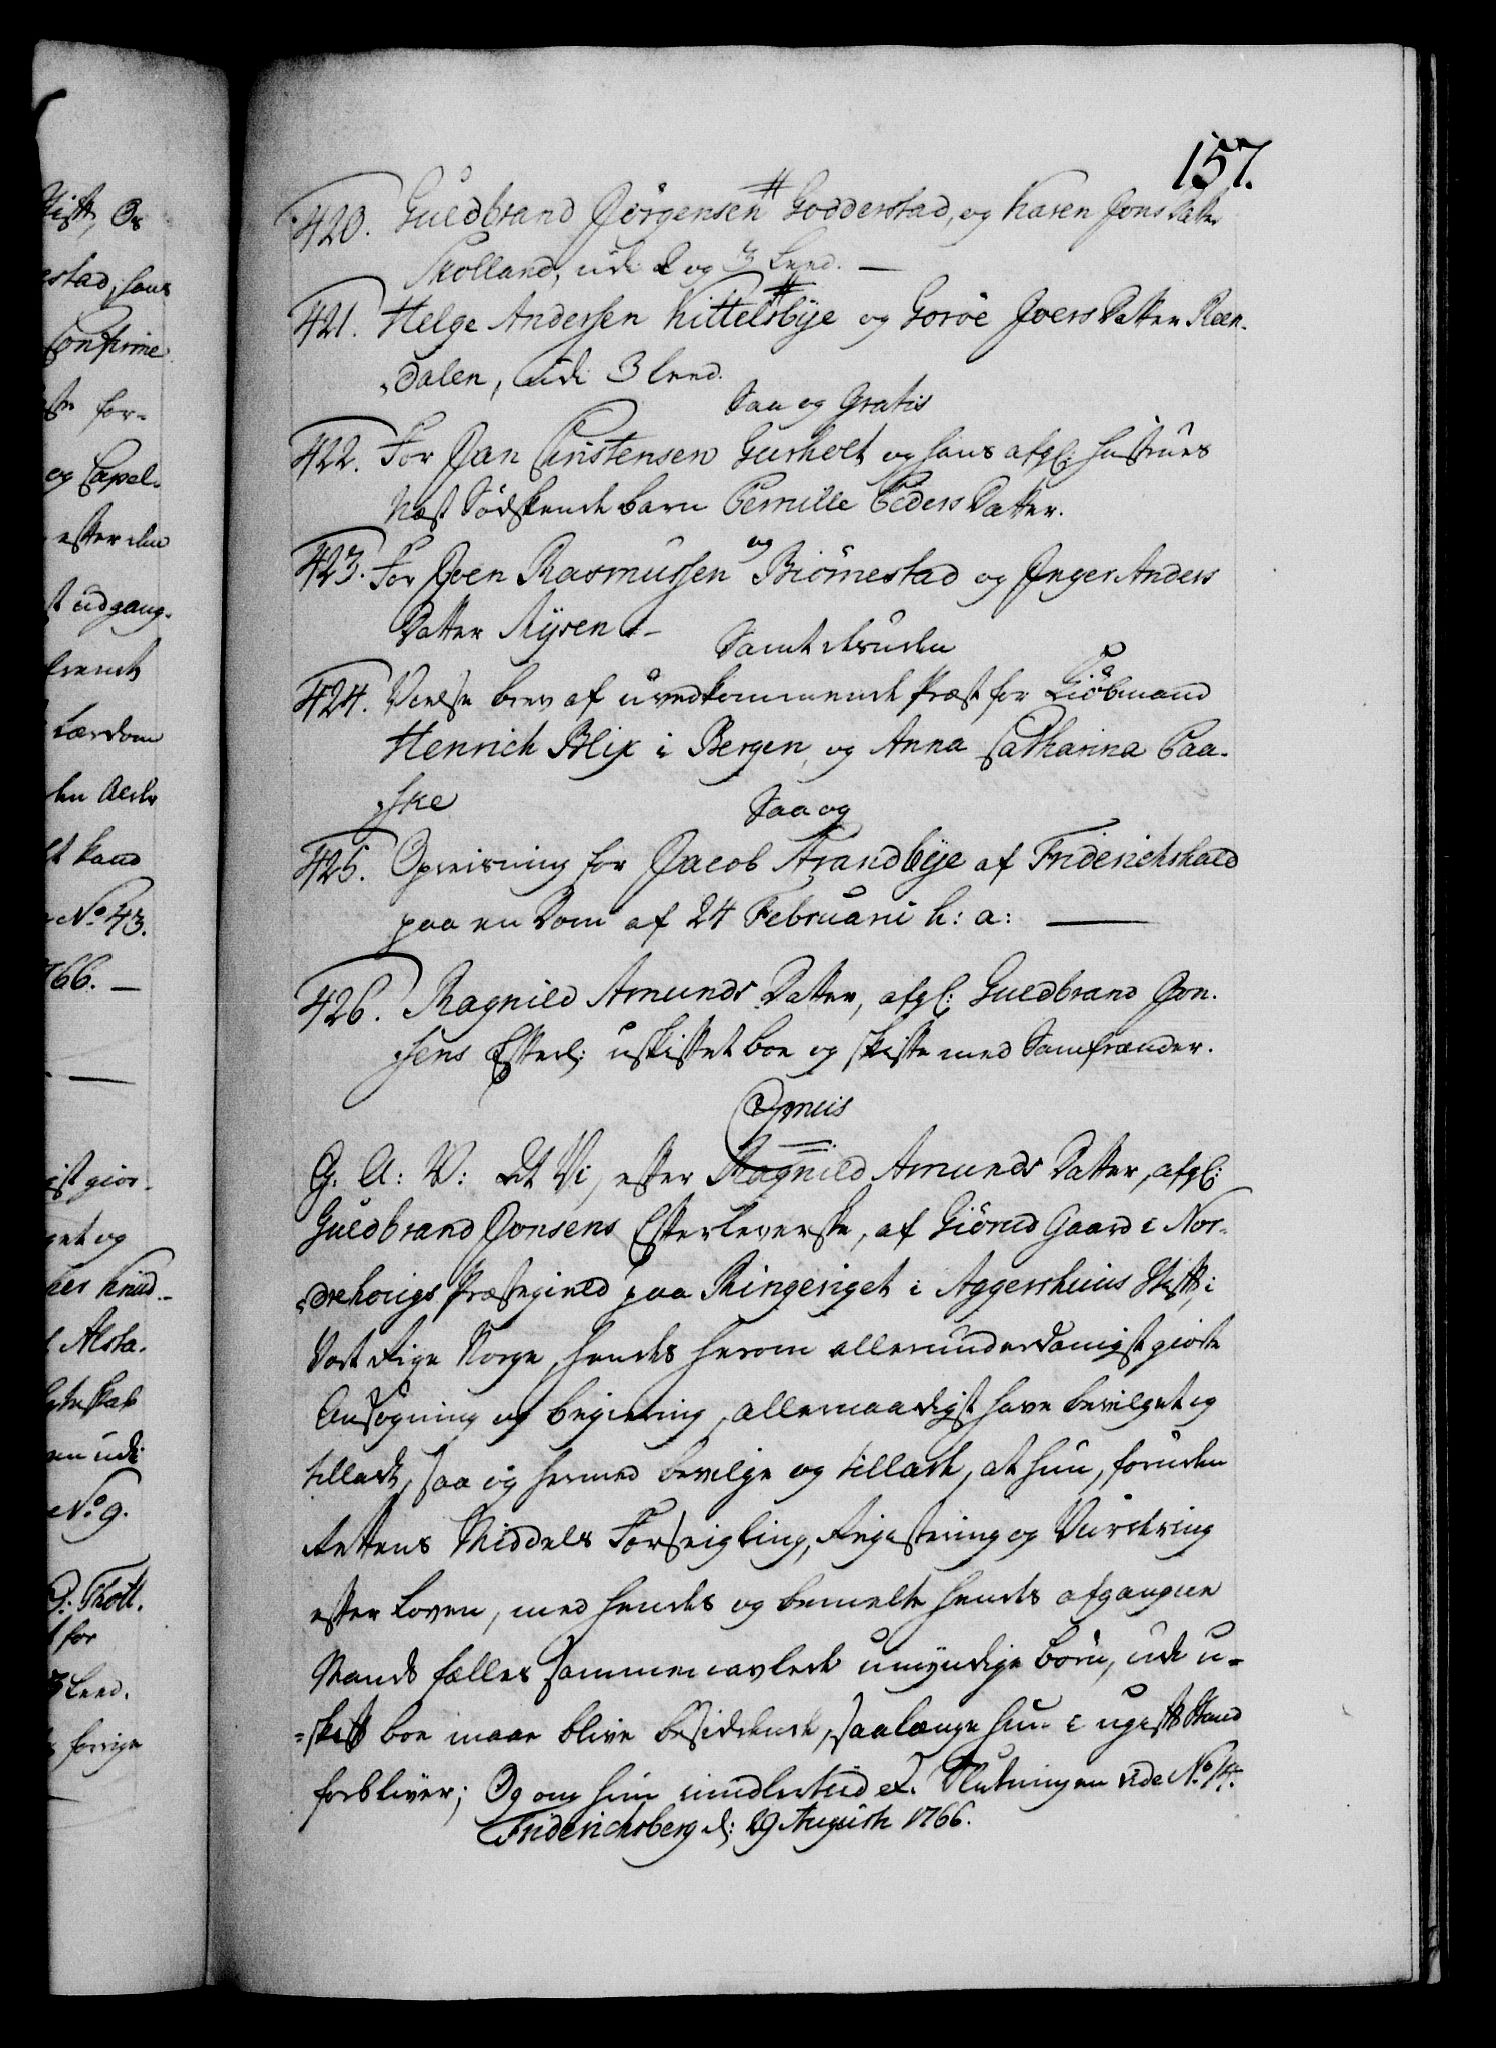 157.
420. Guldbrand Jörgensen # Godderstad, og Karen Jons Datter
Skolland, udi 2 og 3 Leed. —
421. Helge Andersen Kittelsbÿe # og Goroe Joers Datter Roen-
dalen, udi 3 Leed.
Saa og Gratis
422. For Jan Christensen Gusholt og hans afgl: Hustrues
Næst Södskende barn Pernille Peders Datter.
423. For Joen Rasmussen og Biörnestad og Inger Anders
Datter Rÿsen —
Samt desuden
424. Vielse brev af uvedkommende Præst for Kiöbmand
Henrich Blix i Bergen, og Anna Catharina Paa-
ske
Saa og
425. Opreisning for Jacob Strandbÿe af Friderichshald
paa en Dom af 24 Februarii h: a: —
426. Ragnild Amunds Datter, afgl: Guldbrand Jon-
sens Efterl: uskiftet boe og skifte med Samfrænder.
G. A: V: At Vi, efter Ragnild Amunds Datter, afgl:
Guldbrand Jonsens Efterleverske, af Giörud Gaard i Nor-
drehougs Præstegield paa Ringeriget i Aggershuus Stift, i
Vort Rige Norge, hendes herom allerunderdanigst giorte
Ansögning og begiering, allernaadigst have bevilget og
tilladt, saa og hermed bevilge og tillade, at hun, foruden
Rettens Middels Forseigling, Registering og Vurdering
efter Loven, med hendes og bemelte hendes afgangne
Mands fælles sammenavlede umÿndige börn, udi u-
skift boe maae blive besiddende, saalænge hun i ugift Stand
forbliver; Og om hun imidlertiid &. Slutningen vide No. 14.
Friderichsberg d: 29 Augusti 1766.